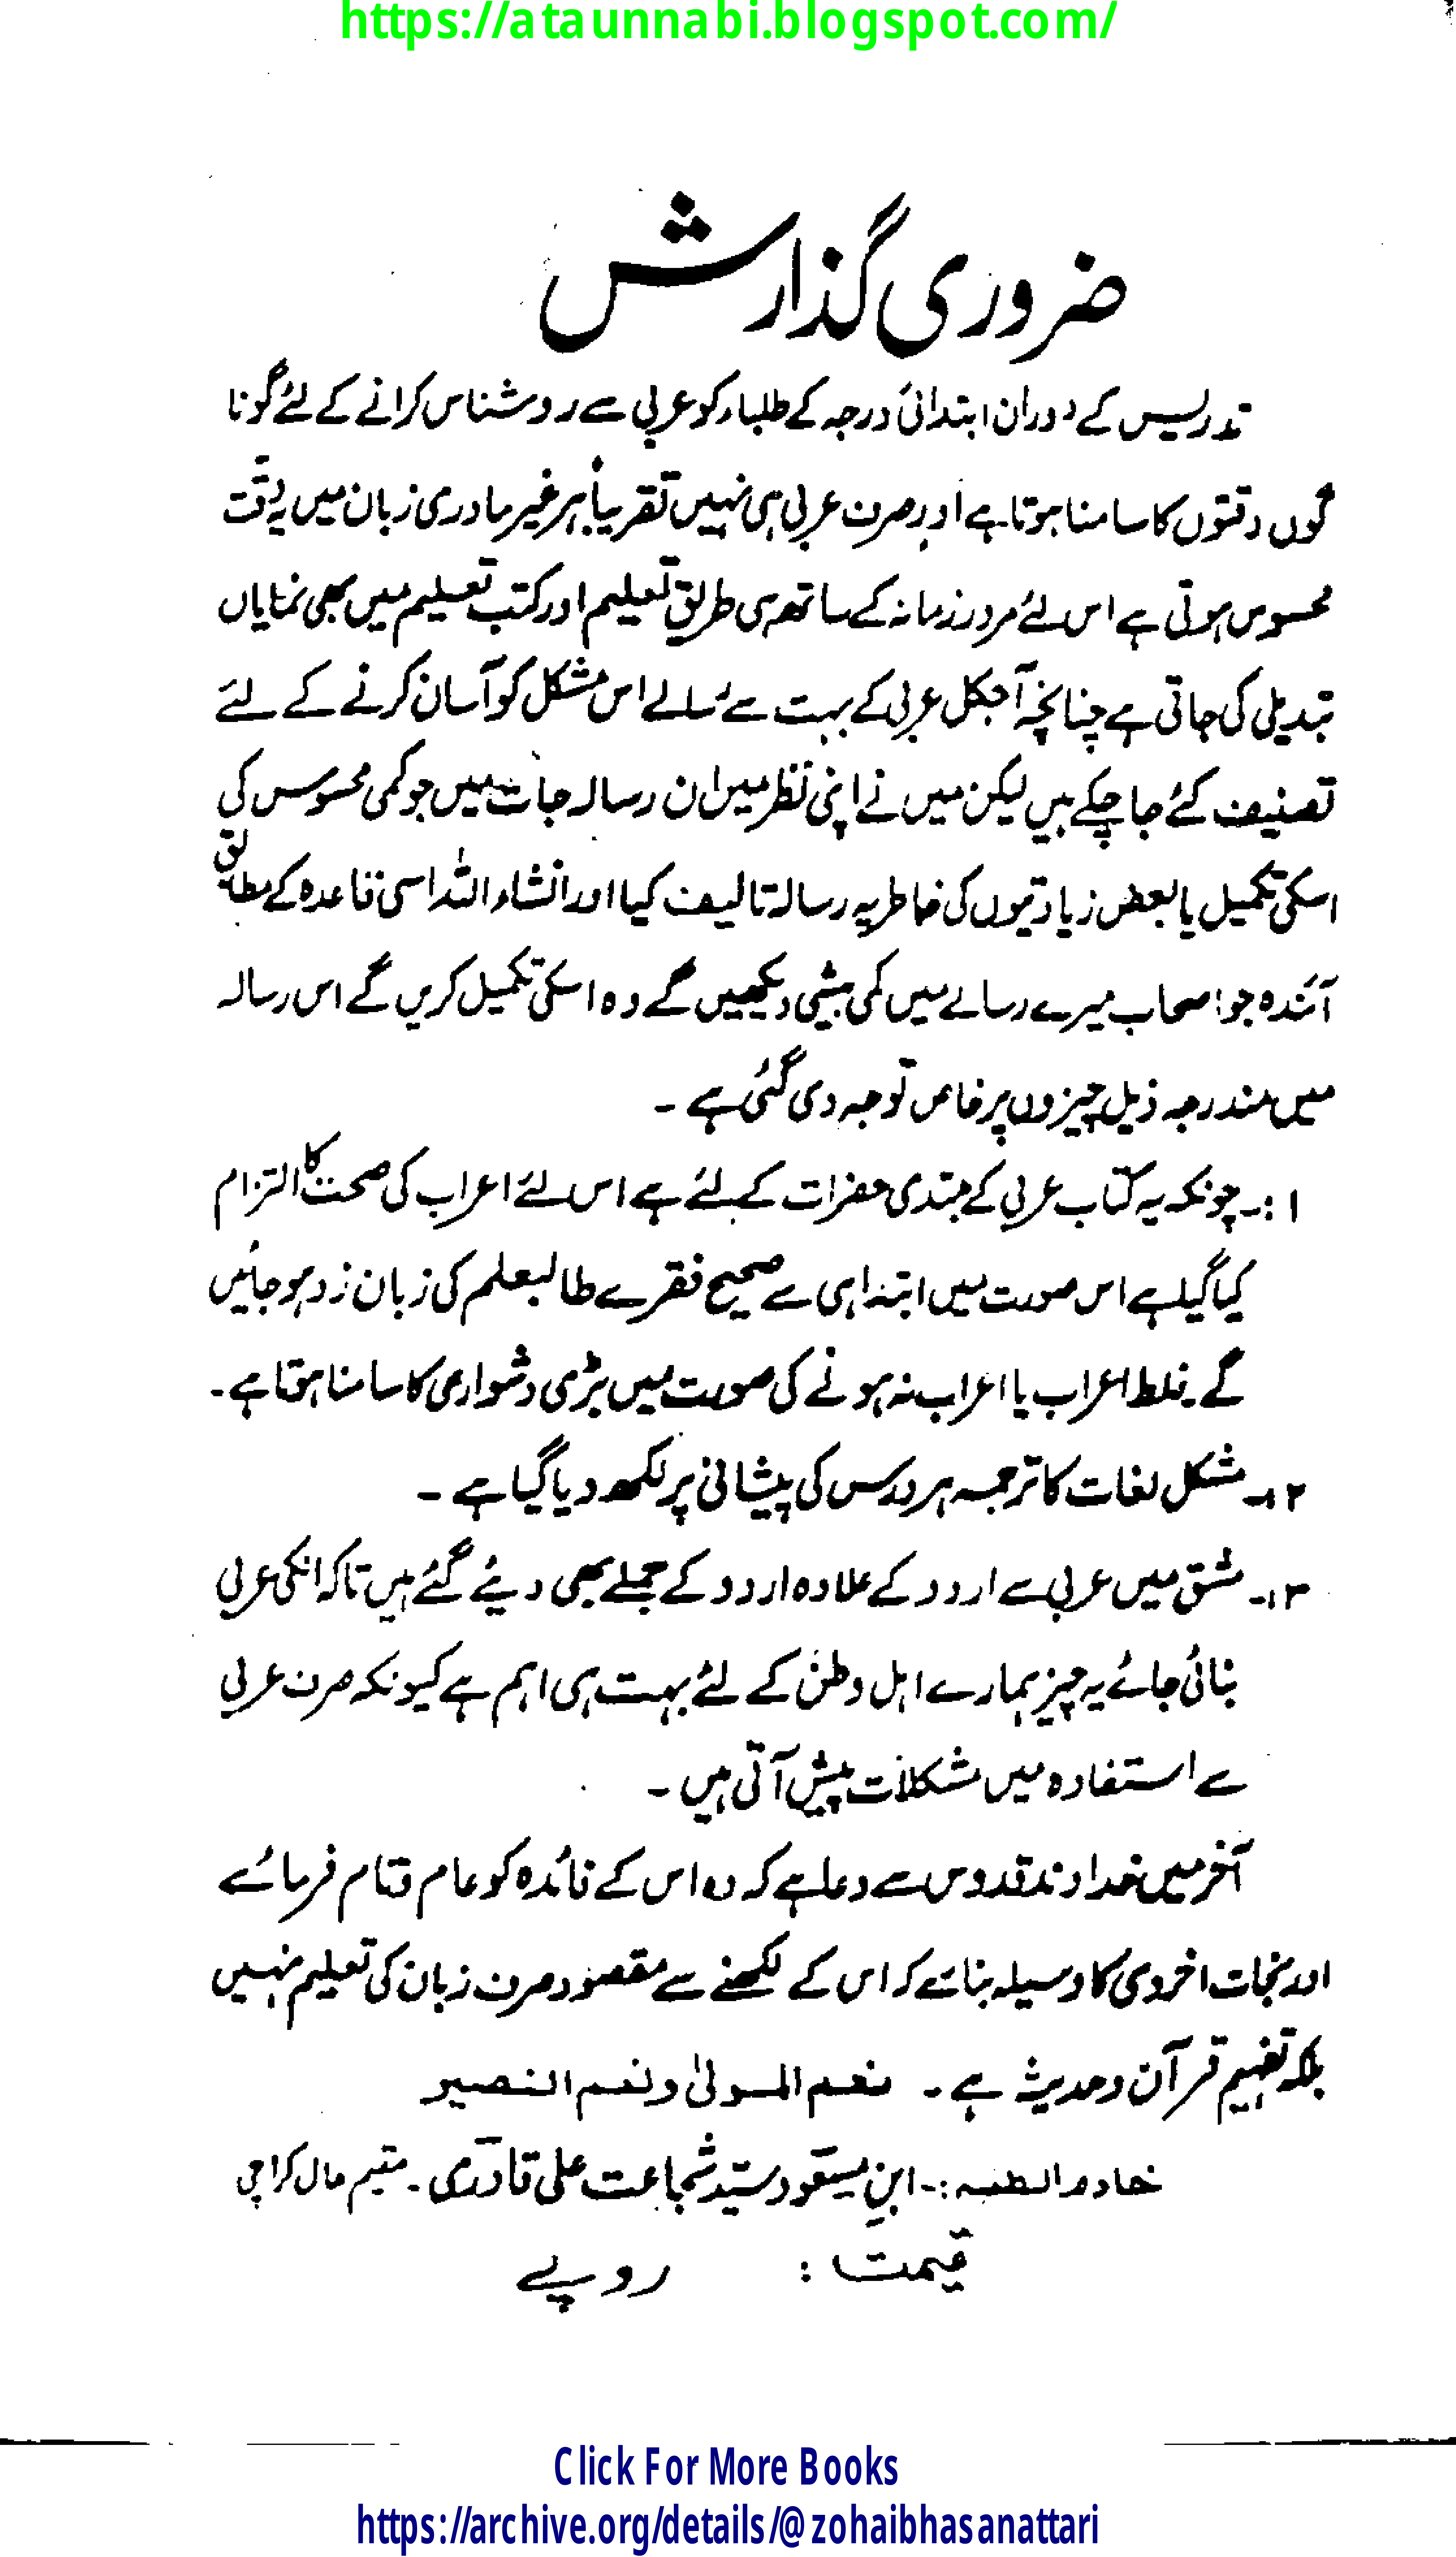 https://ataunnabi.blogspot.com/
ضروری گذارش
تدریس کے دوران ابتدائی درجہ کے طلباء کو عربی سے روشناس کرانے کے لئے گونا
گوں دقتوں کا سامنا ہوتا ہے اور صرف عربی ہی نہیں تقریباً ہر غیر مادری زبان میں یہ دقت
محسوس ہوتی ہے اس لئے مرور زمانہ کے ساتھ ہی طریق تعلیم اور کتب تعلیم میں بھی نمایاں
تبدیلی کی جاتی ہے چنانچہ آجکل عربی کے بہت سے رسالے اس مشکل کو آسان کرنے کے لئے
تصنیف کئے جا چکے ہیں لیکن میں نے اپنی نظر میں ان رسالہ جات میں جو کمی محسوس کی
اسکی تکمیل یا بعض زیادتیوں کی خاطر یہ رسالہ تالیف کیا اور انشاء اللہ اسی قاعدہ کے مطابق
آئندہ جو اصحاب میرے رسالے میں کمی بیشی دیکھیں گے وہ اسکی تکمیل کریں گے اس رسالہ
میں مندرجہ ذیل چیزوں پر خاص توجہ دی گئی ہے ۔
۱:۔ چونکہ یہ کتاب عربی کے مبتدی حضرات کے لئے ہے اس لئے اعراب کی صحت کا التزام
کیا گیا ہے اس صورت میں ابتدا ہی سے صحیح فقرے طالبعلم کی زبان زد ہو جائیں
گے ۔ غلط اعراب یا اعراب نہ ہونے کی صورت میں بڑی دشواری کا سامنا ہوتا ہے ۔
۲۔ مشکل لغات کا ترجمہ ہر درس کی پیشانی پر لکھ دیا گیا ہے ۔
۳۔ مشق میں عربی سے اردو کے علاوہ اردو کے جملے بھی دیئے گئے ہیں تاکہ انکی عربی
بنائی جائے یہ چیز ہمارے اہل وطن کے لئے بہت ہی اہم ہے کیونکہ صرف عربی
سے استفادہ میں مشکلات پیش آتی ہیں ۔
آخر میں خداوند قدوس سے دعا ہے کہ وہ اس کے فائدہ کو عام و تام فرمائے
اور نجات اخروی کا وسیلہ بنائے کہ اس کے لکھنے سے مقصود صرف زبان کی تعلیم نہیں
بلکہ تفہیم قرآن و حدیث ہے ۔ نعم المولیٰ ونعم النصیر
خادم الطلبہ :۔ ابن مسعود سید شجاعت علی قادری ۔ مقیم حال کراچی
قیمت : روپے
Click For More Books
https://archive.org/details/@zohaibhasanattari